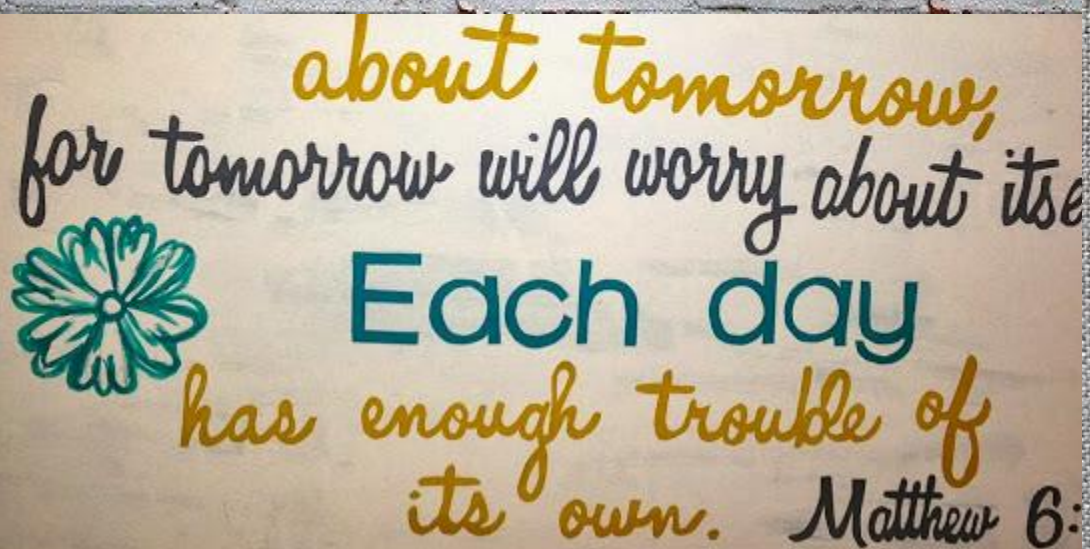 about tomorrow,
for tomorrow will worry about itse
Each day
has enough trouble of
its own. Matthew 6: